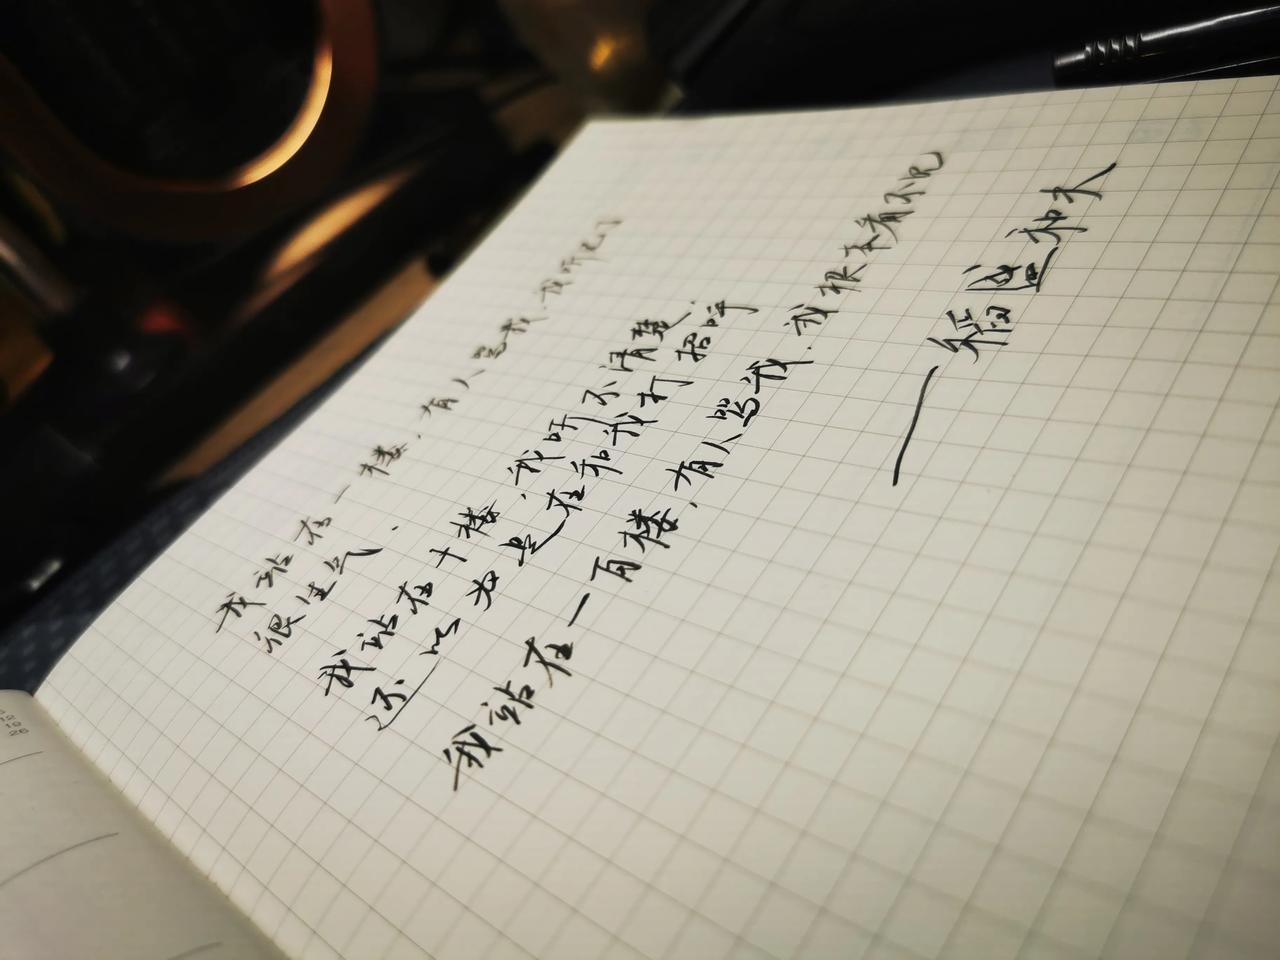 我站在一楼，有人骂我，我听见了
很生气．
我站在十楼，我听不清楚．
还以为是在和我打招呼
我站在一百楼，有人骂我．我根本看不见
——稻盛和夫
12
19
26